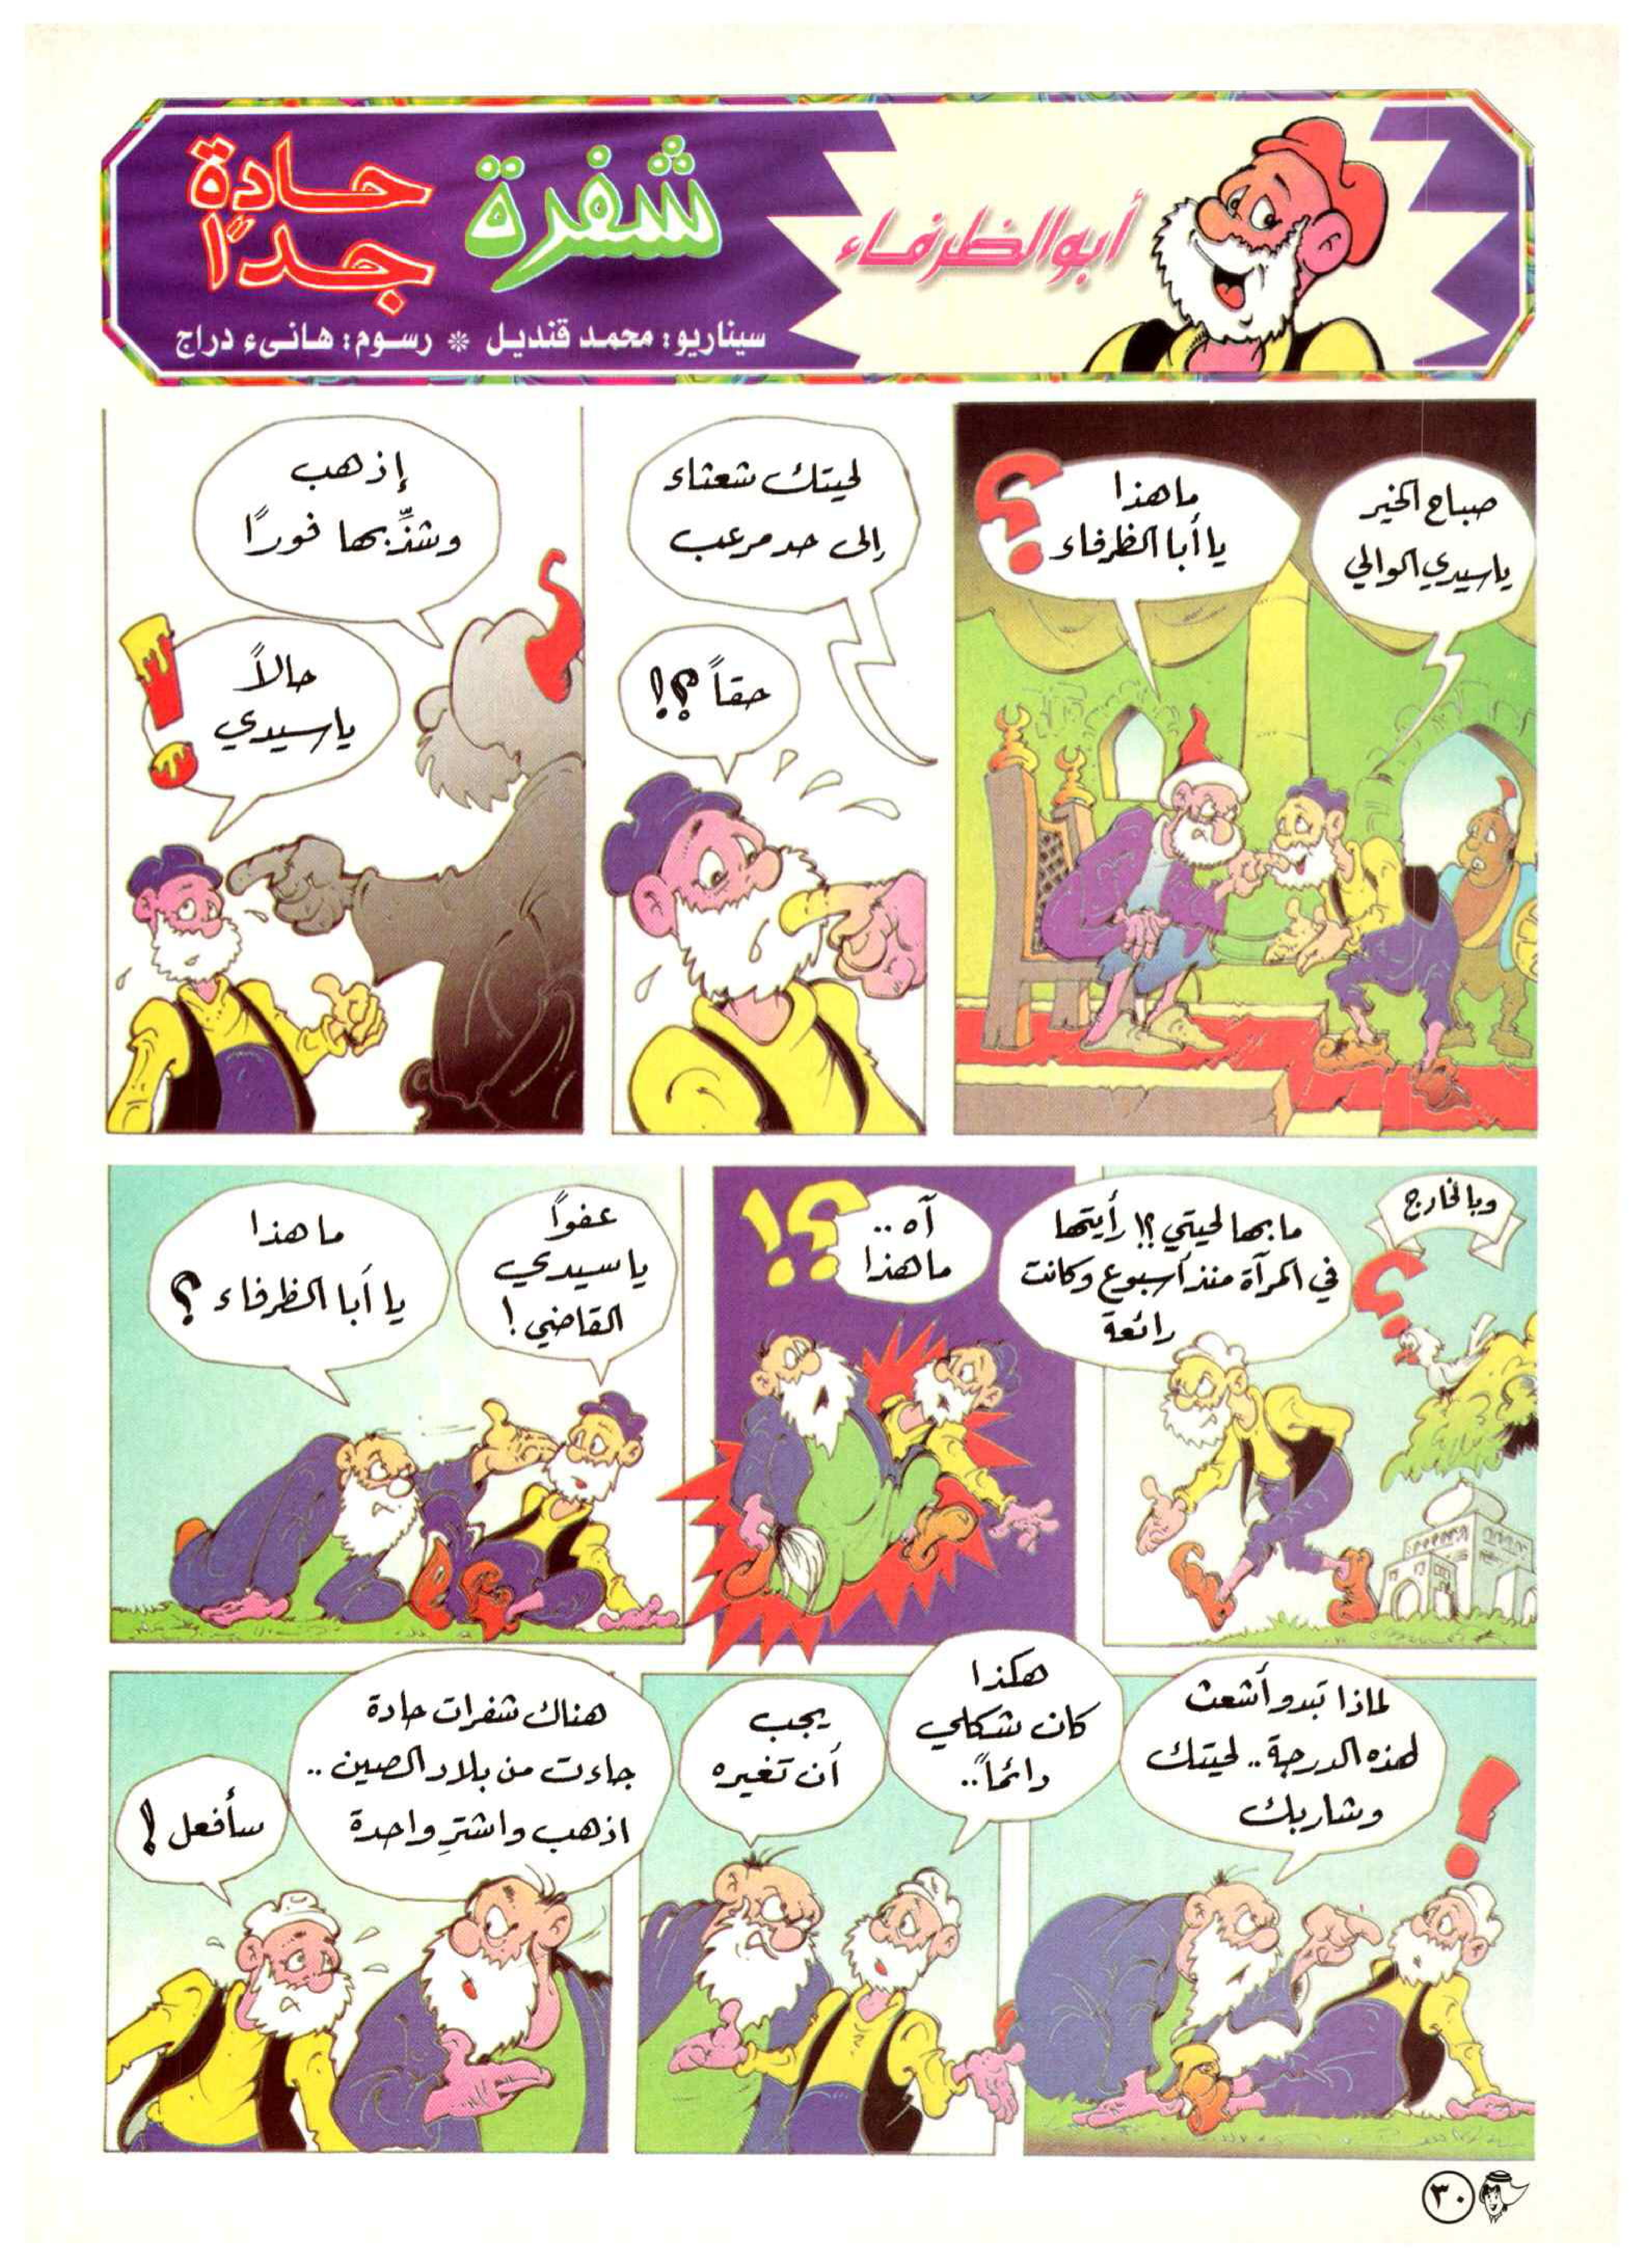 أبو الظرفاء
شفرة
حادة
جدًا
سيناريو: محمد قنديل * رسوم: هانىء دراج
صباح الخير
يا سيدي الوالي
ما هذا
يا أبا الظرفاء؟
لحيتك شعثاء
إلى حد مرعب
حقاً؟!
إذهب
وشذِّبها فورًا
حالاً
يا سيدي!
وبالخارج
ما بها لحيتي؟! رأيتها
في المرآة منذ أسبوع وكانت
رائعة
؟
آه..
ما هذا؟!
عفواً
يا سيدي
القاضي!
ما هذا
يا أبا الظرفاء؟
لماذا تبدو أشعث
لهذه الدرجة.. لحيتك
وشاربك
!
هكذا
كان شكلي
دائماً..
يجب
أن تغيره
هناك شفرات حادة
جاءت من بلاد الصين..
اذهب واشترِ واحدة
سأفعل!
٣٠